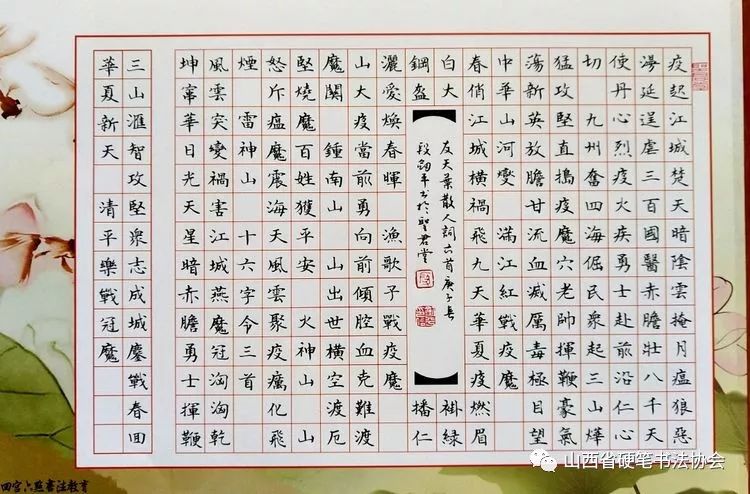 疫起江城楚天暗陰雲掩月瘟狼惡
漫延逞虐三百國醫赤膽壯八千天
使丹心烈疫火疾勇士赴前沿仁心
切 九州奮四海倔民衆起三山燁
猛攻堅直搗疫魔穴老帥揮鞭豪氣
蕩新英放膽甘流血滅厲毒極目望
中華山河變 滿江紅戰疫魔
春俏江城橫禍飛九天華夏疫燃眉
白大 褂緑
鋼盔 播仁
友天葉散人詞六首庚子春
段劍平書於聖君堂
灑愛煥春暉 漁歌子戰疫魔
山大疫當前勇向前傾腔血克難渡
魔關 鍾南山 山出世橫空渡厄
堅燒魔百姓獲平安 火神山
怒斥瘟魔震海天風雲聚疫癘化飛
煙 雷神山 十六字令三首
風雲突變禍害江城燕魔冠洶洶乾
坤甯華日光天星暗赤膽勇士揮鞭
三山滙智攻堅衆志成城鏖戰春回
華夏新天 清平樂戰冠魔
山西省硬笔书法协会